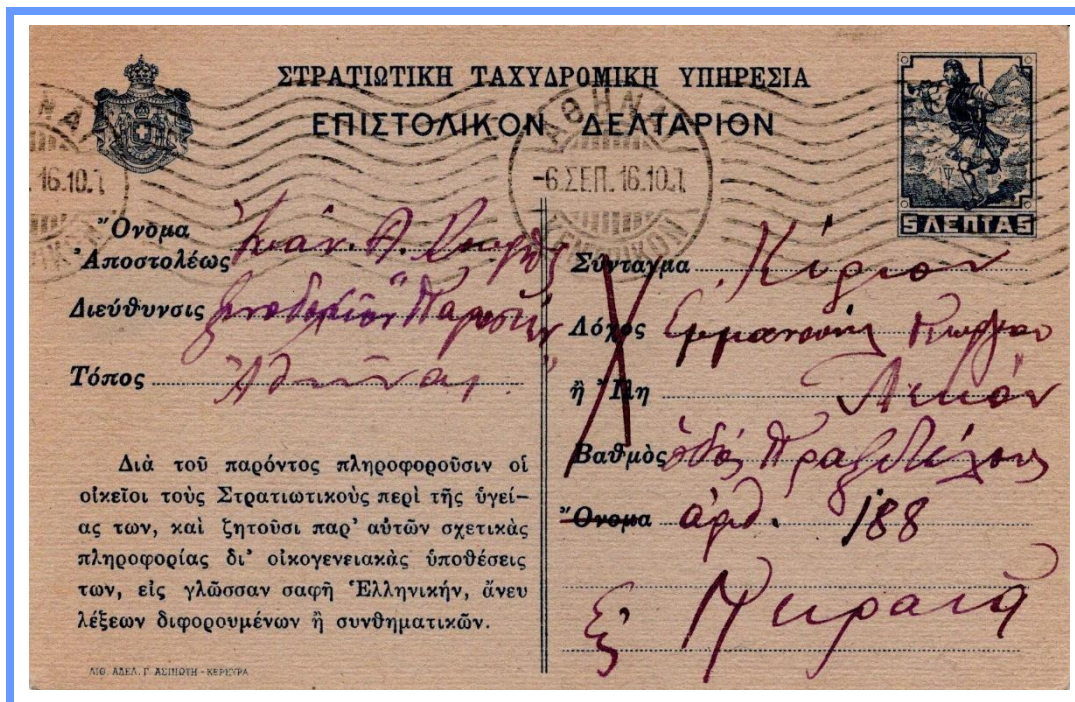 ΣΤΡΑΤΙΩΤΙΚΗ ΤΑΧΥΔΡΟΜΙΚΗ ΥΠΗΡΕΣΙΑ
ΕΠΙΣΤΟΛΙΚΟΝ ΔΕΛΤΑΡΙΟΝ
ΑΘΗΝΑΙ
-6.ΣΕΠ. 16.10.
5 ΛΕΠΤΑ 5
Ὄνομα
Ἀποστολέως
Διεύθυνσις
Τόπος Ἀθήνας
Διὰ τοῦ παρόντος πληροφοροῦσιν οἱ
οἰκεῖοι τοὺς Στρατιωτικοὺς περὶ τῆς ὑγεί-
ας των, καὶ ζητοῦσι παρ' αὐτῶν σχετικὰς
πληροφορίας δι' οἰκογενειακὰς ὑποθέσεις
των, εἰς γλῶσσαν σαφῆ Ἑλληνικήν, ἄνευ
λέξεων διφορουμένων ἢ συνθηματικῶν.
ΛΙΘ. ΑΔΕΛ. Γ. ΑΣΠΙΩΤΗ - ΚΕΡΚΥΡΑ
Σύνταγμα Κύριον
Λόχος Εμμανουήλ
ἢ Ἴλη
Βαθμὸς ὁδός Πραξιτέλους
Ὄνομα ἀριθ. 188
Πειραιᾶ